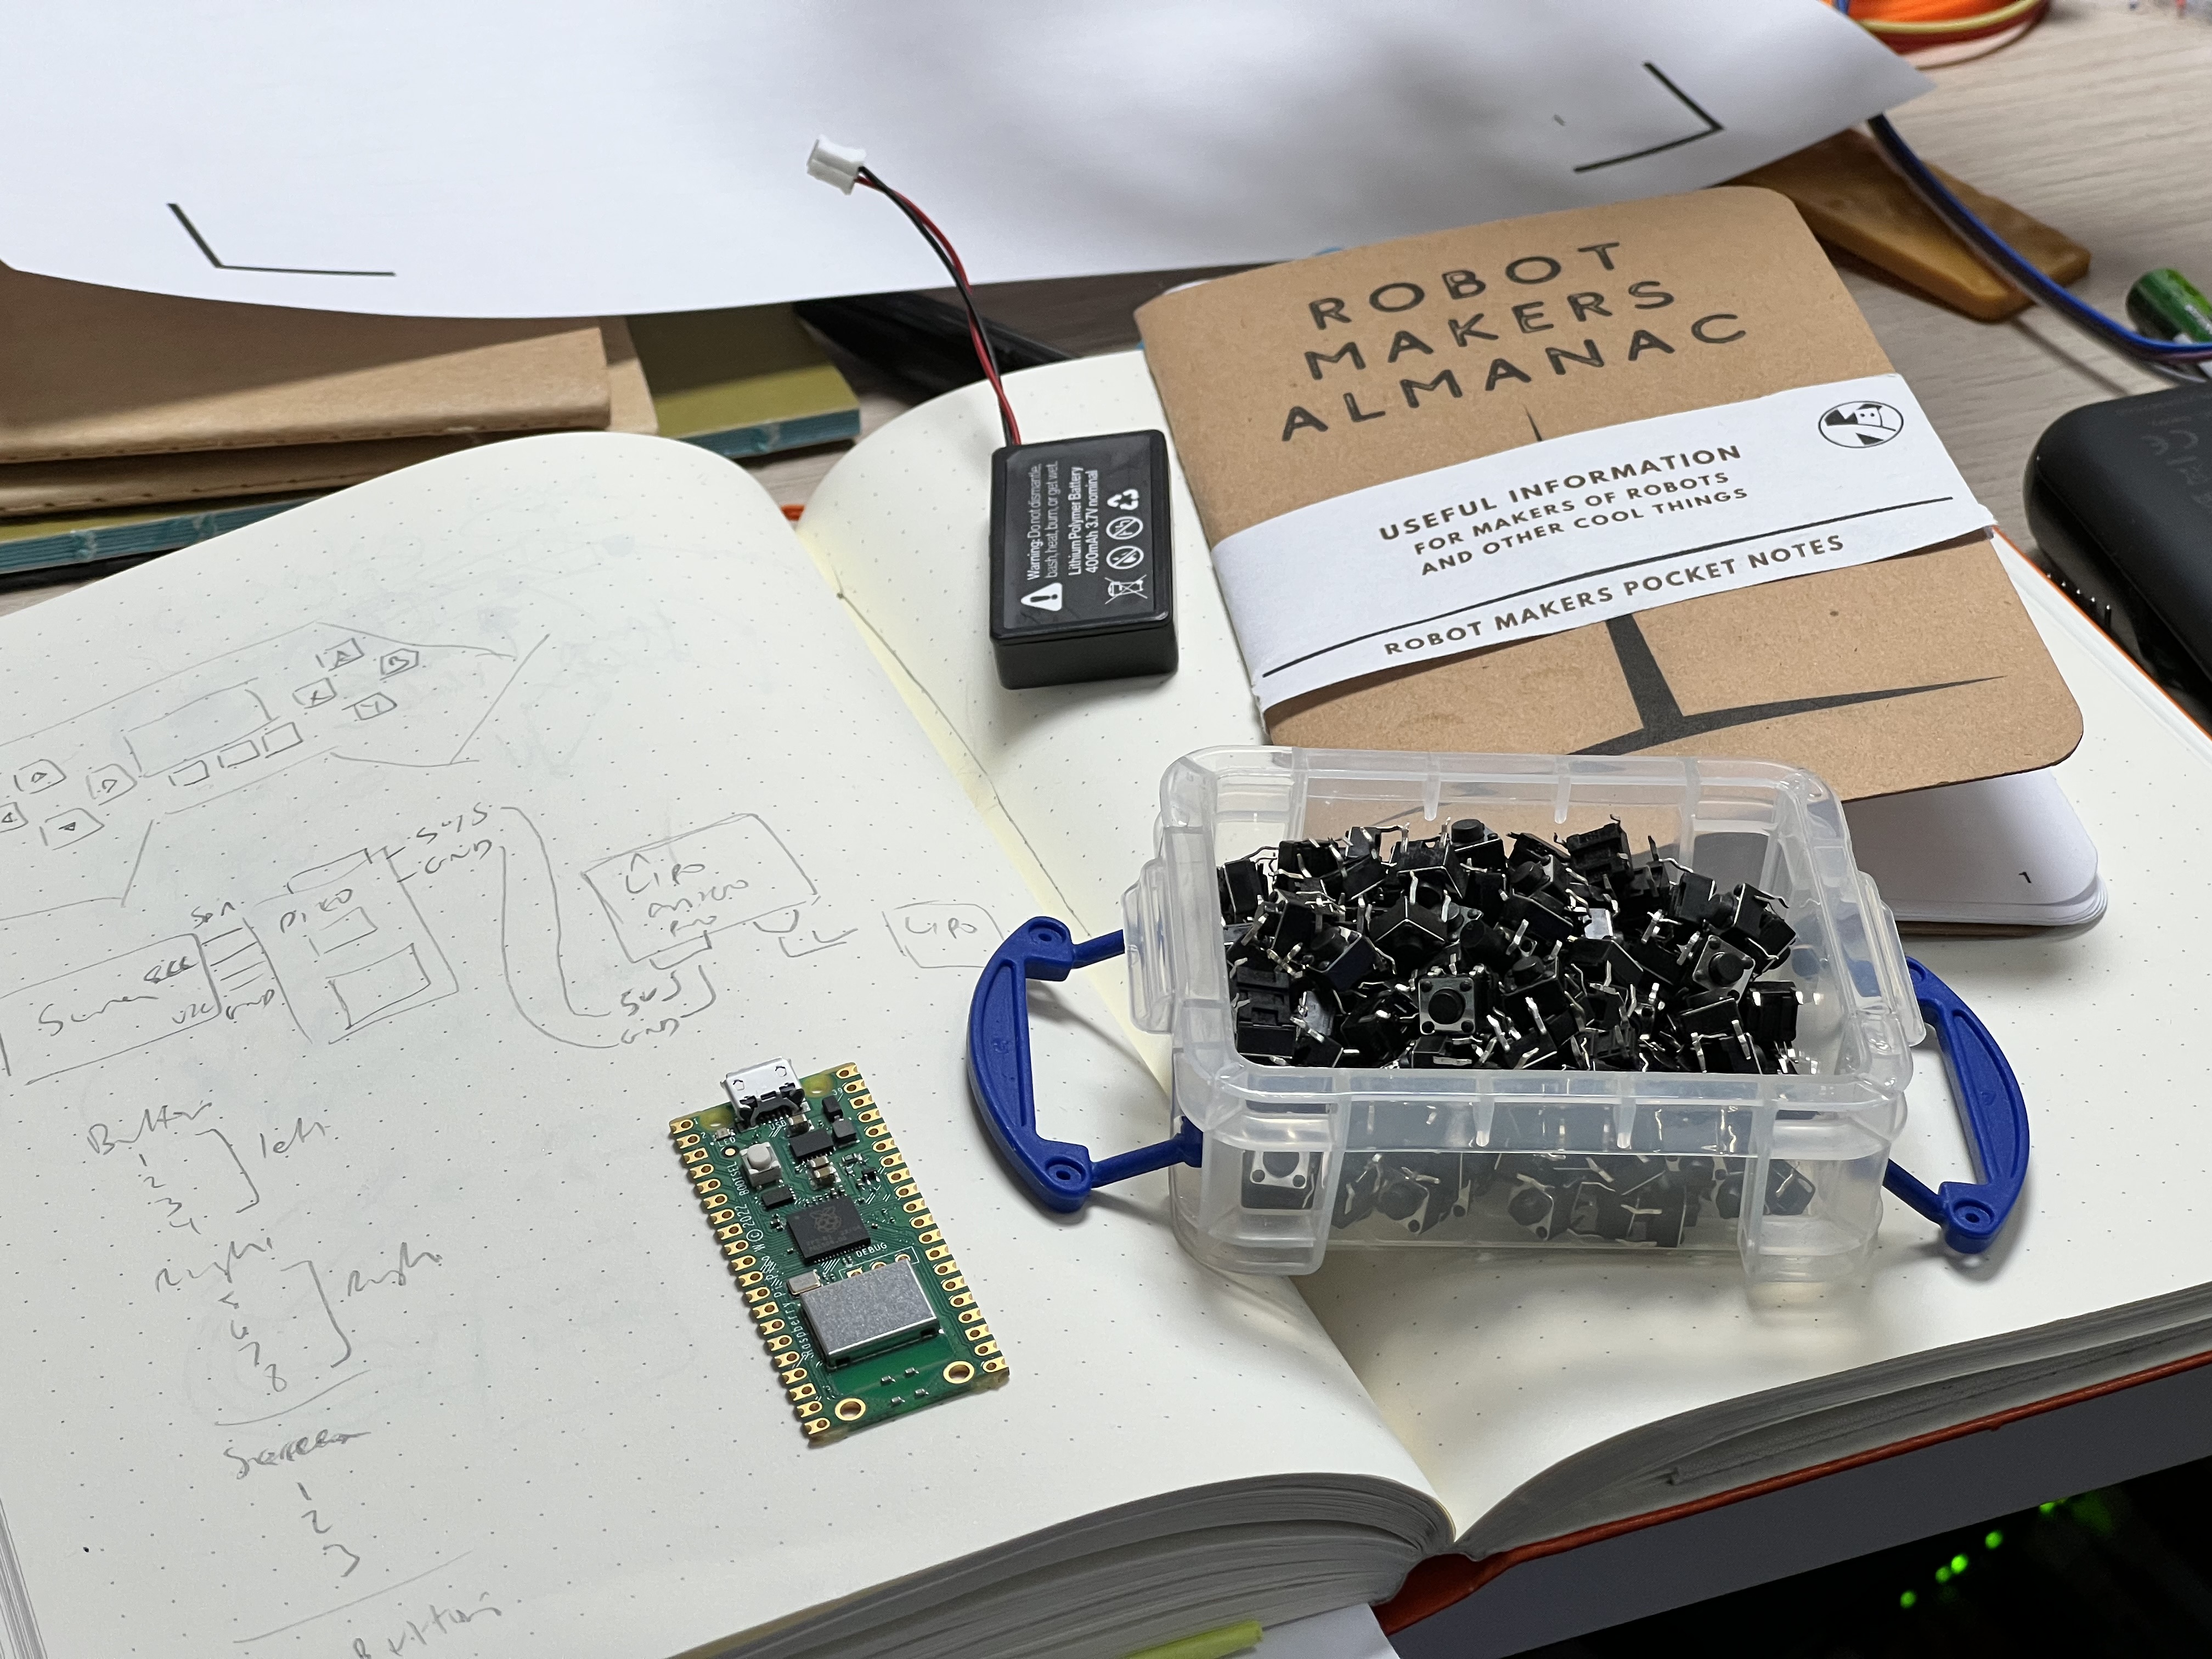 ROBOT
MAKERS
ALMANAC
USEFUL INFORMATION
FOR MAKERS OF ROBOTS
AND OTHER COOL THINGS
ROBOT MAKERS POCKET NOTES
1
Warning: Do not dismantle,
bash, heat, burn, or get wet.
Lithium Polymer Battery
400mAh 3.7V nominal
A
B
X
Y
GND
PICO
LIPO
LIPO
Screen
GND
5V
GND
Button
left
1
2
3
4
Right
Right
6
7
8
Screen
1
2
3
Buttons
LED
USB
BOOTSEL
DEBUG
Raspberry Pi Pico W © 2022
39